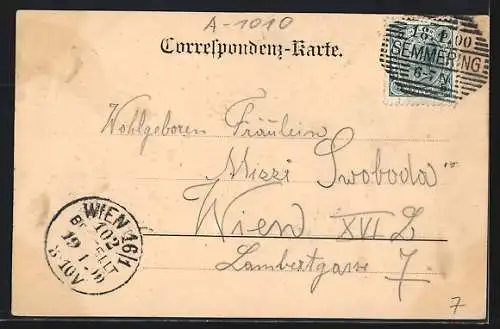 A-1010
Correspondenz-Karte.
18.1.00
SEMMERING
6-7 N
Wohlgeboren Fräulein
Mizzi Swoboda
Wien XVI. Z.
Lambertgasse 7
WIEN 16/1
102
BESTELLT
19 1 00
8·10V
7